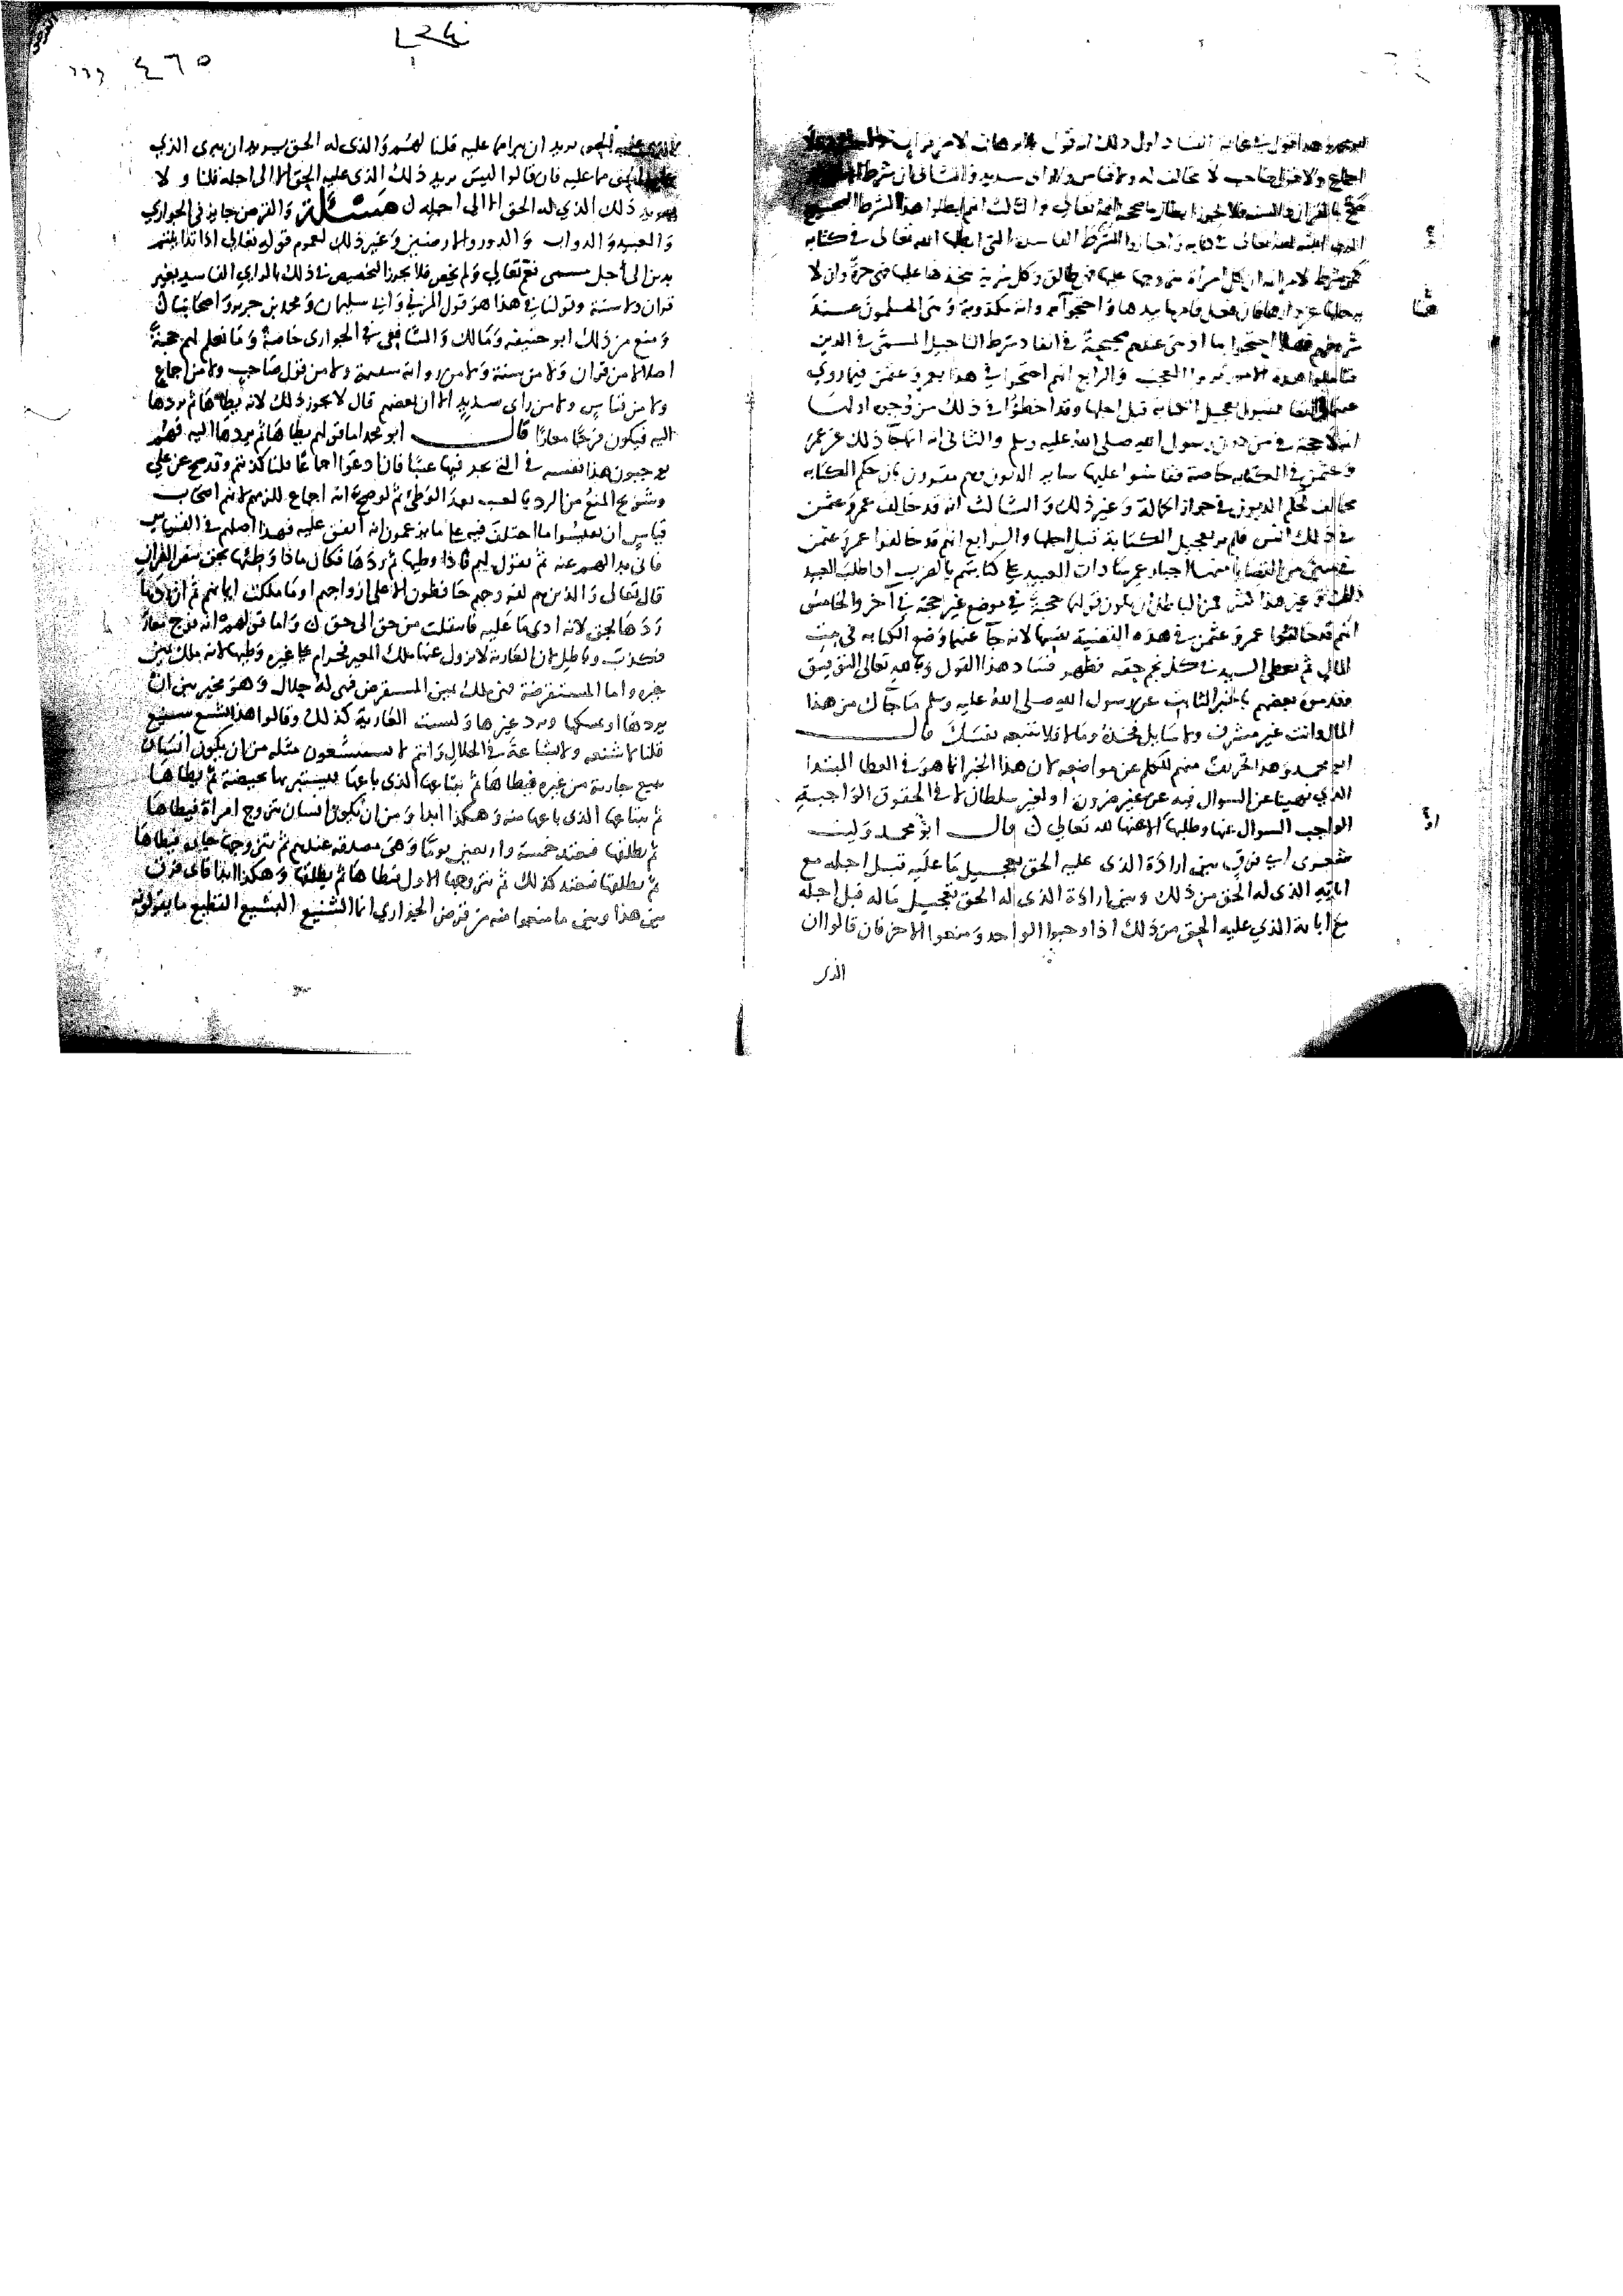 ابو محمد وهذا قول في غاية الفساد اول ذلك انه قول بلا برهان لا من قران ولا
اجماع ولا قول صاحب لا مخالف له ولا قياس ولا راي سديد والثاني ان شرط
صح بالقران والسنة فلا يجوز ابطال ما صححه الله تعالى والثالث انهم ابطلوا هذا الشرط الصحيح
الذي اثبته الله تعالى في كتابه واجازوا الشروط الفاسدة التي ابطلها الله تعالى في كتابه
كمن شرط لامراته ان كل امراة يتزوجها عليها فهي طالق وكل سرية يتخذها عليها فهي حرة وان لا
يرحلها عن دارها فان فعل فامرها بيدها واحتجوا به وانه مكذوبة وهي المسلمون عند
شروطهم فهلا احتجوا بها اذ هي عندهم صحيحة في انفاذ شرط التاجيل المسمى في الدين
فتاملوا هذه الامور تروا العجب والرابع انهم احتجوا في هذا بعمر وعثمن فيما روي
عنهما من القضا بقبول تعجيل الكتابة قبل اجلها وقد اخطؤا في ذلك من وجوه اولها
انه لا حجة في من دون رسول الله صلى الله عليه وسلم والثاني انه انما جا ذلك عن عمر
وعثمن في الكتابة خاصة فقاسوا عليها ساير الديون وهم مقرون بان حكم الكتابة
مخالف لحكم الديون في جواز الحمالة وغير ذلك والثالث انه قد خالف عمر وعثمن
في ذلك انس فلم ير تعجيل الكتابة قبل اجلها والرابع انهم قد خالفوا عمر وعثمن
في كثير من القضايا منها اجبار عمر سادات العبيد على كتابتهم بالضرب اذا طلب العبيد
ذلك وغير هذا كثير فمن الباطل ان يكون قولهما حجة في موضع غير حجة في آخر والخامس
انهم قد خالفوا عمر وعثمن في هذه القضية بعينها لانه جا عنهما وضع الكتابة في بيت
المال ثم تعطى السيد في كل نجم حقه فظهر فساد هذا القول وبالله تعالى التوفيق
وقد موه بعضهم بالخبر الثابت عن رسول الله صلى الله عليه وسلم ما جاك من هذا
المال وانت غير مشرف ولا سايل فخذه وما لا فلا تتبعه نفسك قال
ابو محمد وهذا تحريف منهم للكلم عن مواضعه لان هذا الخبر انما هو في العطا المبتدا
الذي نهينا عن السوال فيه عن غير ضرورة او لغير سلطان لا في الحقوق الواجبة
الواجب السوال عنها وطلبها لاهلها لله تعالى ن قال ابو محمد وليت
شعري اي فرق بين ارادة الذي عليه الحق تعجيل ما عليه قبل اجله مع
اباية الذي له الحق من ذلك وبين ارادة الذي له الحق تعجيل ماله قبل اجله
مع اباية الذي عليه الحق من ذلك اذا وجبوا الواحد ومنعوا الاخر فان قالوا ان
الذي
٤٦٥
الذي عليه الحق يريد ان يبرا مما عليه قلنا لهم والذي له الحق يريد ان يبري الذي
عليه الحق مما عليه فان قالوا ليس يريد ذلك الذي عليه الحق الا الى اجله قلنا ولا
يريد ذلك الذي له الحق الا الى اجله ن مسئلة والقرض جايز في الجواري
والعبيد والدواب والدور والارضين وغير ذلك لعموم قوله تعالى اذا تداينتم
بدين الى أجل مسمى فعم تعالى ولم يخص فلا يجوز التخصيص في ذلك بالراي الفاسد بغير
قران ولا سنة وقولنا في هذا هو قول المزني وابي سليمان ومحمد بن جرير واصحابنا ن
ومنع من ذلك ابو حنيفه ومالك والشافعي في الجواري خاصة وما نعلم لهم حجة
اصلا لا من قران ولا من سنة ولا من رواية سقيمة ولا من قول صاحب ولا من اجماع
ولا من قياس ولا من راي سديد الا ان بعضهم قال لا يجوز ذلك لانه يطاها ثم يردها
اليه فيكون فرجا معارا قال ابو محمد اما قولهم يطاها ثم يردها اليه فهم
يوجبون هذا نفسه في التي يجد فيها عيبا فان ادعوا اجماعا قلنا كذبتم وقد صح عن علي
وشريح المنع من الرد بالعيب بعد الوطى ثم لو صح انه اجماع للزمهم لانهم اصحاب
قياس ان يقيسوا ما اختلف فيه على ما يزعمون انه اتفق عليه فهذا اصلهم في القياس
فاني بدا لهم عنه ثم نقول لهم فاذا وطيها ثم ردها فكان ماذا وطئها بحق بنص القران
قال تعالى والذين هم لفروجهم حافظون الا على ازواجهم او ما ملكت ايمانهم ثم ان ردها
ردها بحق لانه ادى ما عليه فانتقلت من حق الى حق ن واما قولهم انه فرج معار
فكذب وباطل لان العارية لا يزول عنها ملك المعير فحرام على غيره وطيها لانه ملك يمين
غيره واما المستقرضة فهي ملك يمين المستقرض فهي له حلال وهو مخير بين ان
يردها او يمسكها ويرد غيرها وليست العارية كذلك وقالوا هذا شنع سنيع
قلنا لا شنعة ولا بشاعة في الحلال وانتم لا تستشنعون مثله من ان يكون انسان
يبيع جارية من غيره فيطاها ثم يبتاعها الذي باعها فيستبريها بحيضة ثم يطاها
ثم يبتاعها الذي باعها منه وهكذا ابدا ومن ان يكون انسان يتزوج امراة فيطاها
ثم يطلقها فتعتد خمسة واربعين يوما وهي مصدقة عندهم ثم يتزوجها جاره فيطاها
ثم يطلقها فتعتد كذلك ثم يتزوجها الاول فيطاها ثم يطلقها وهكذا ابدا فاي فرق
بين هذا وبين ما منعوا منه من قرض الجواري انما الشنيع البشيع الفظيع ما يقولونه